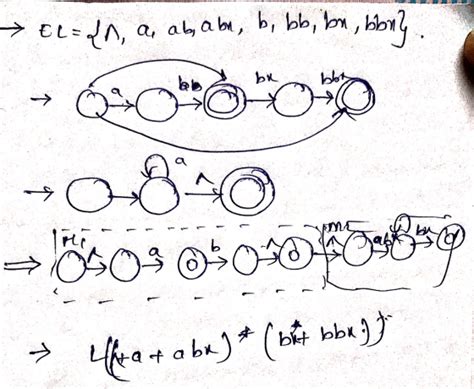 → EL = {Λ, a, ab, abx, b, bb, bx, bbx}.
→ a bb bx bbx
→ a Λ
⇒ M1 Λ a b Λ Λ ab bx
→ (Λ+a + abx)* (bx + bbx))*